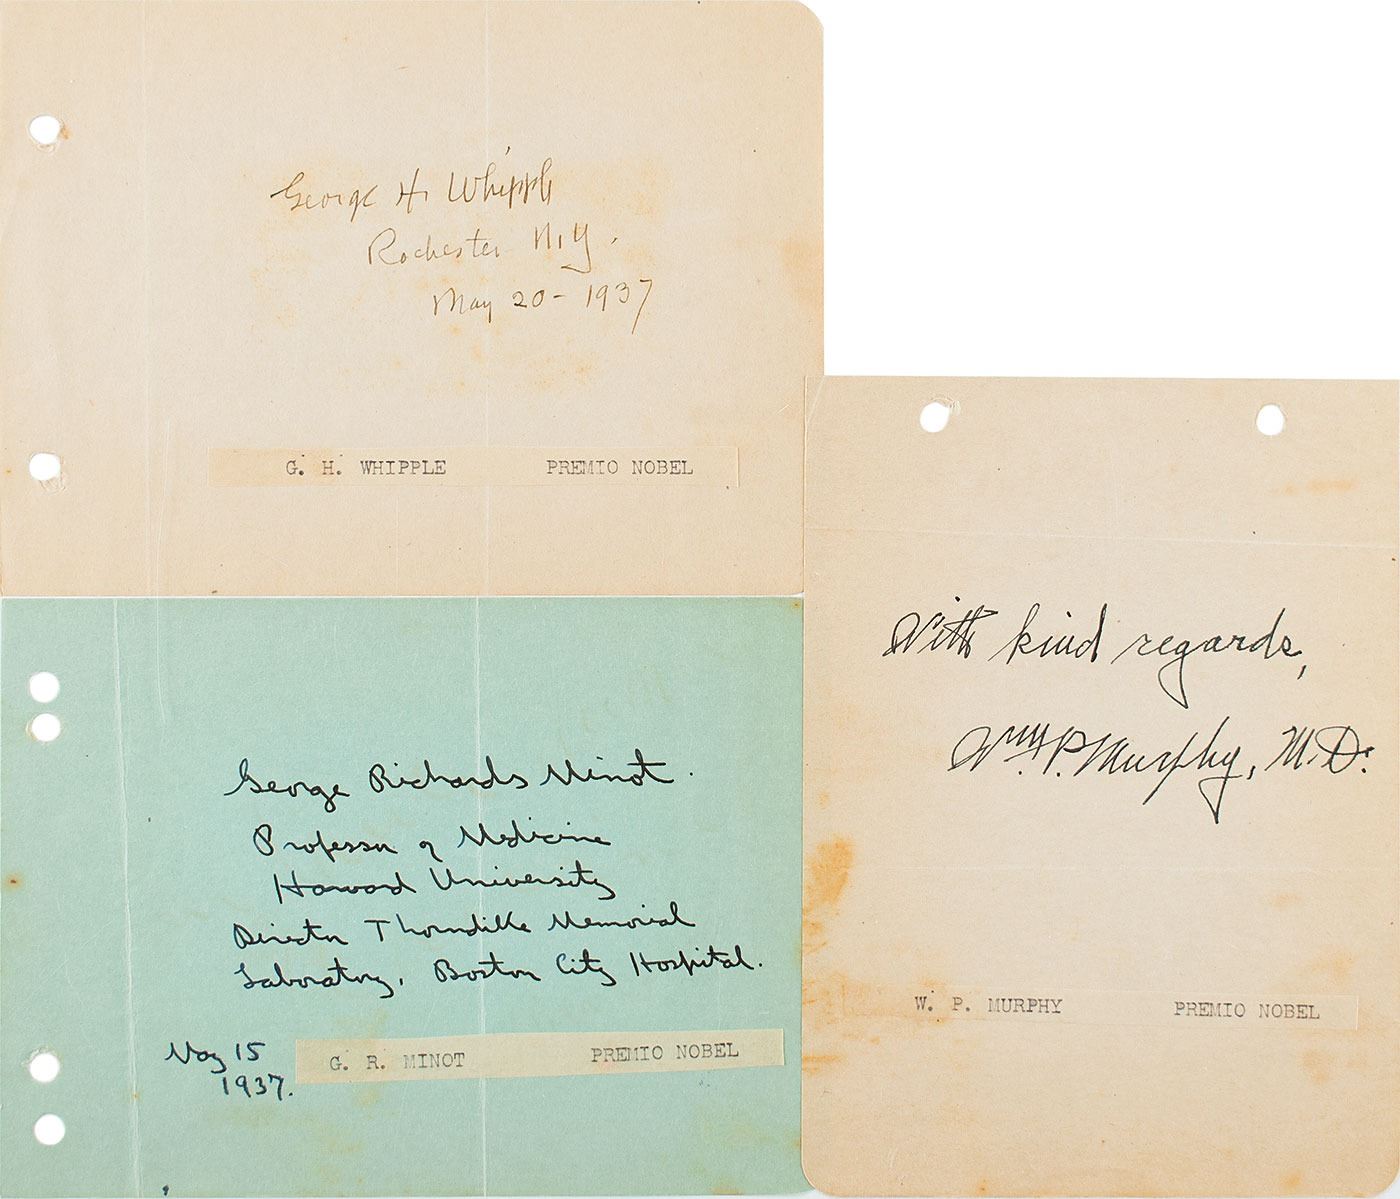 George H. Whipple
Rochester N.Y.
May 20 - 1937
G. H. WHIPPLE PREMIO NOBEL
George Richards Minot.
Professor of Medicine
Harvard University
Director Thorndike Memorial
Laboratory, Boston City Hospital.
May 15
1937.
G. R. MINOT PREMIO NOBEL
With kind regards,
Wm. P. Murphy, M.D.
W. P. MURPHY PREMIO NOBEL